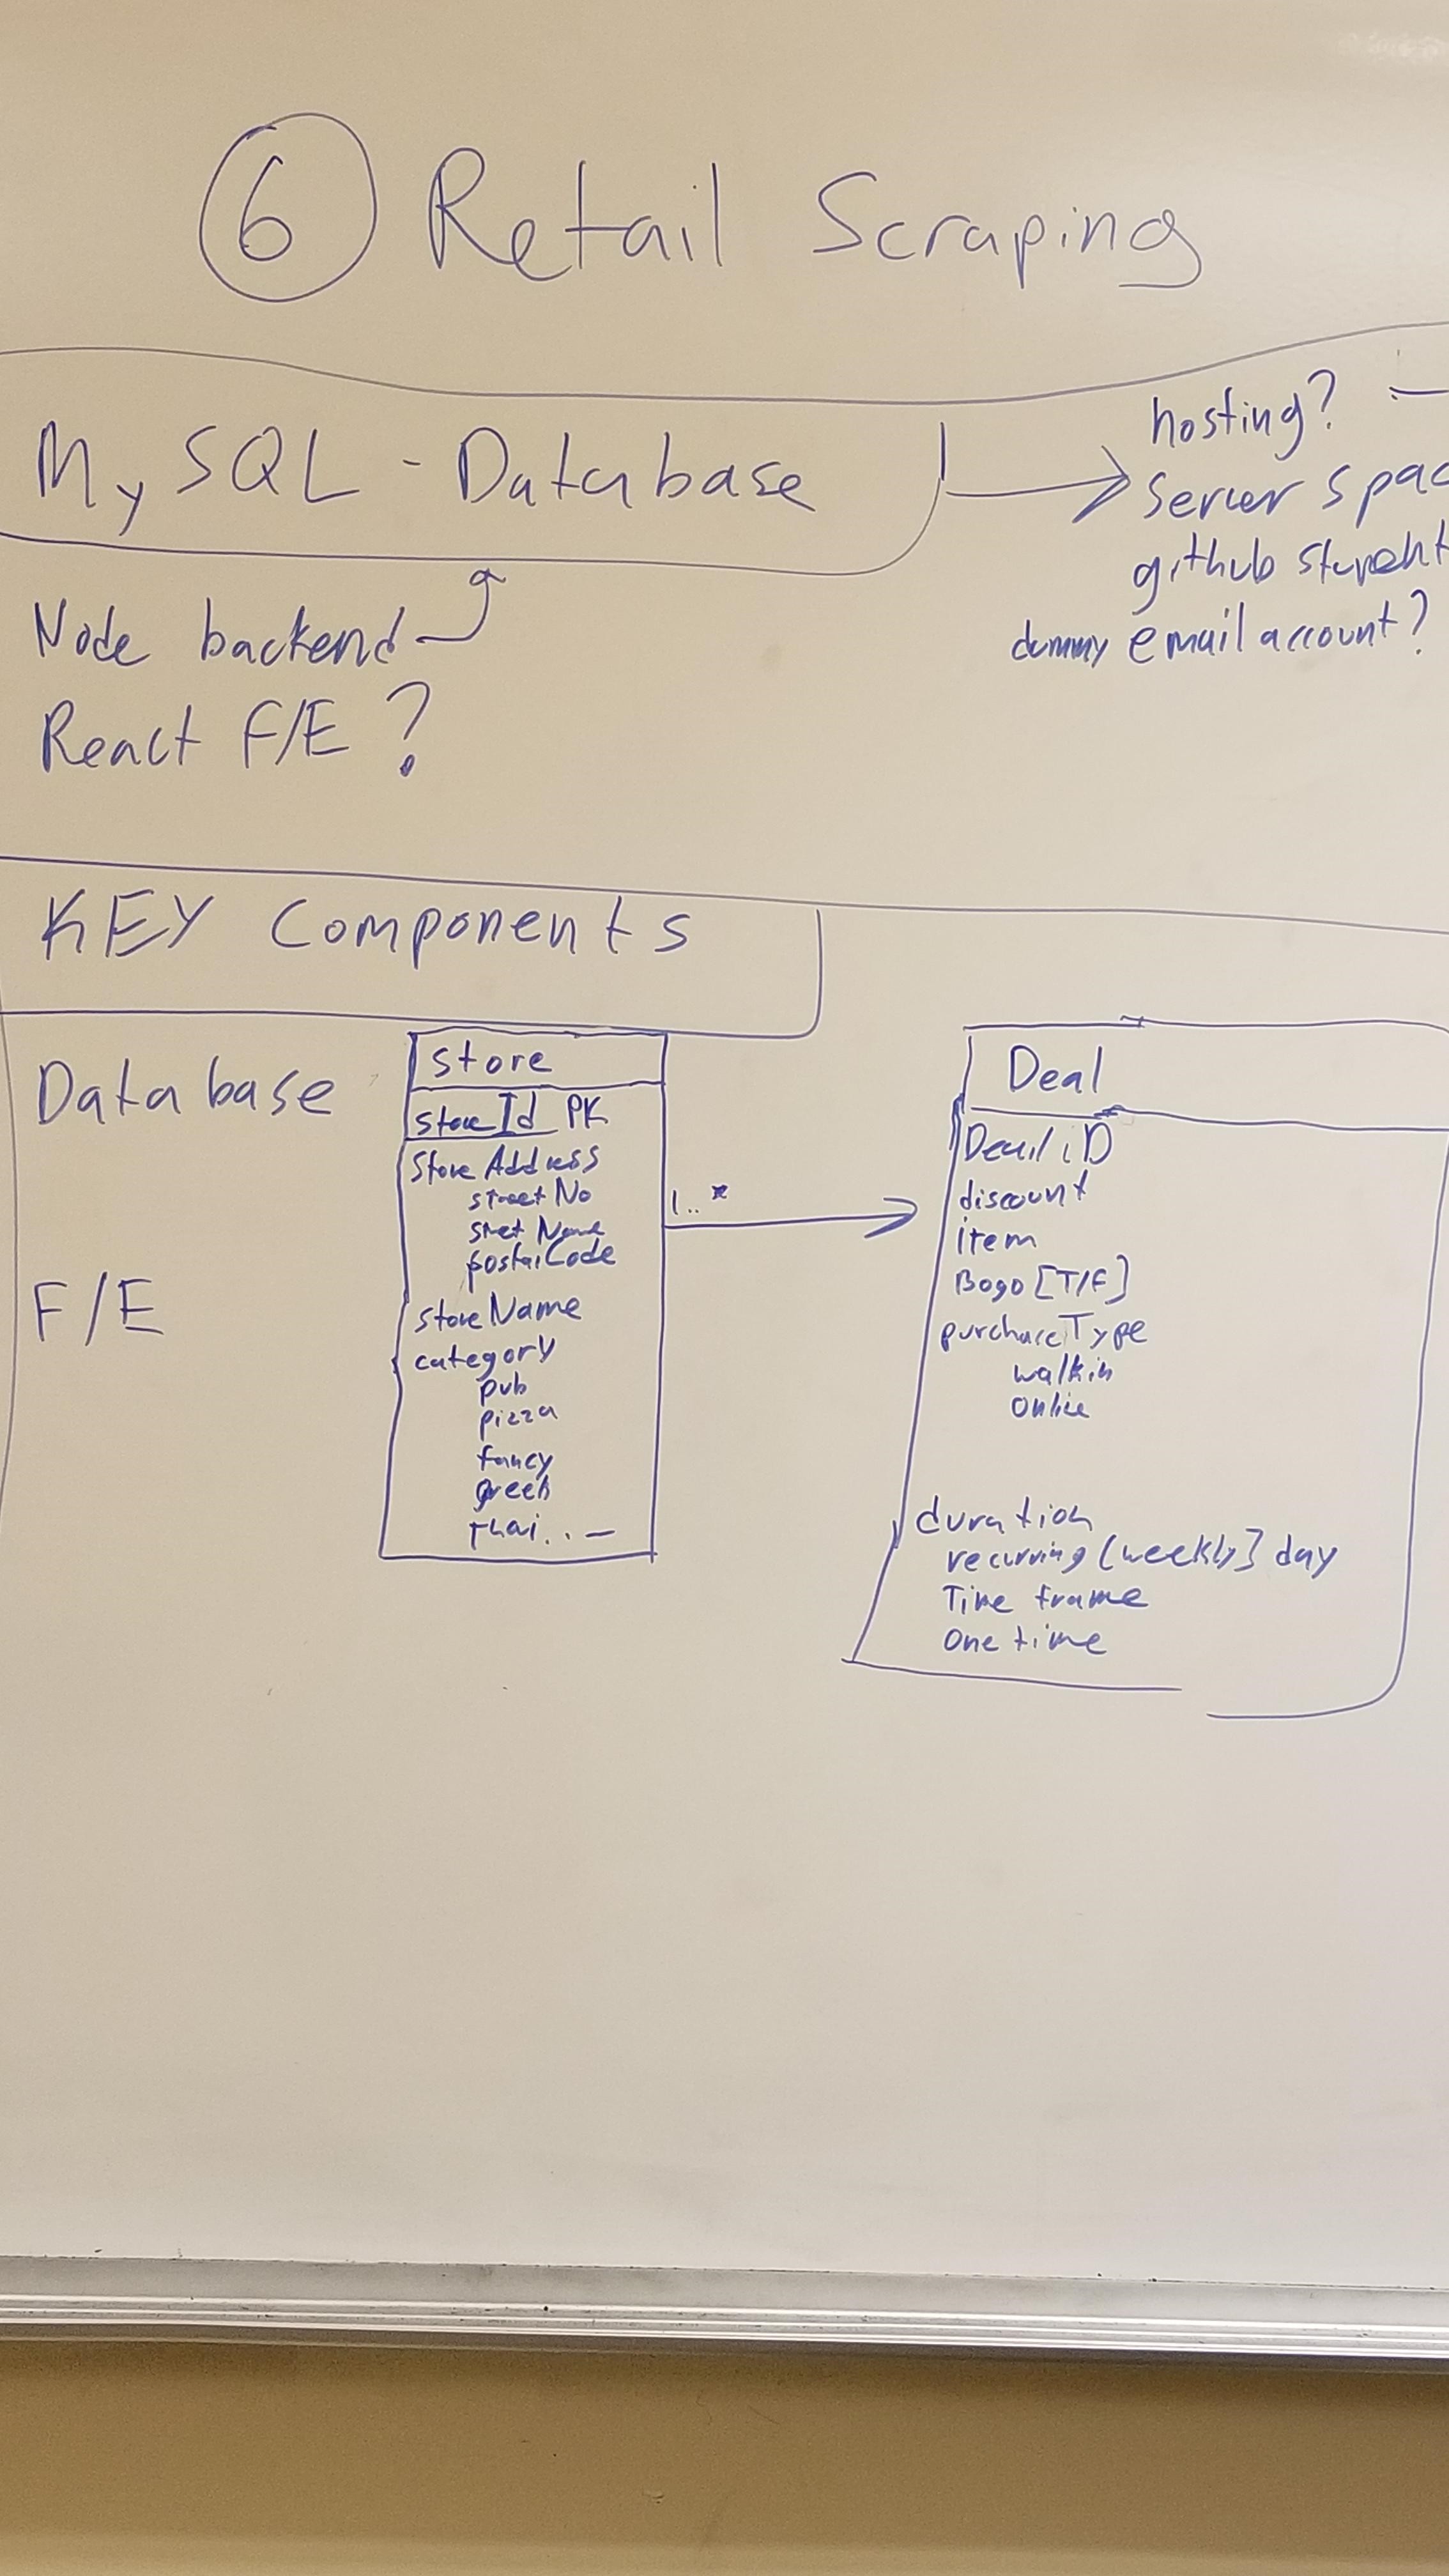 6 Retail Scraping
MySQL - Database
hosting?
Server spac
github student
dummy email account?
Node backend
React F/E ?
KEY Components
Database
F/E
Store
Store Id PK
Store Address
street No
street Name
postalCode
Store Name
category
pub
pizza
fancy
greek
Thai...
1..*
Deal
Deal iD
discount
item
Bogo [T/F]
purchaseType
walkin
Online
duration
recurring [weekly] day
Time frame
One time